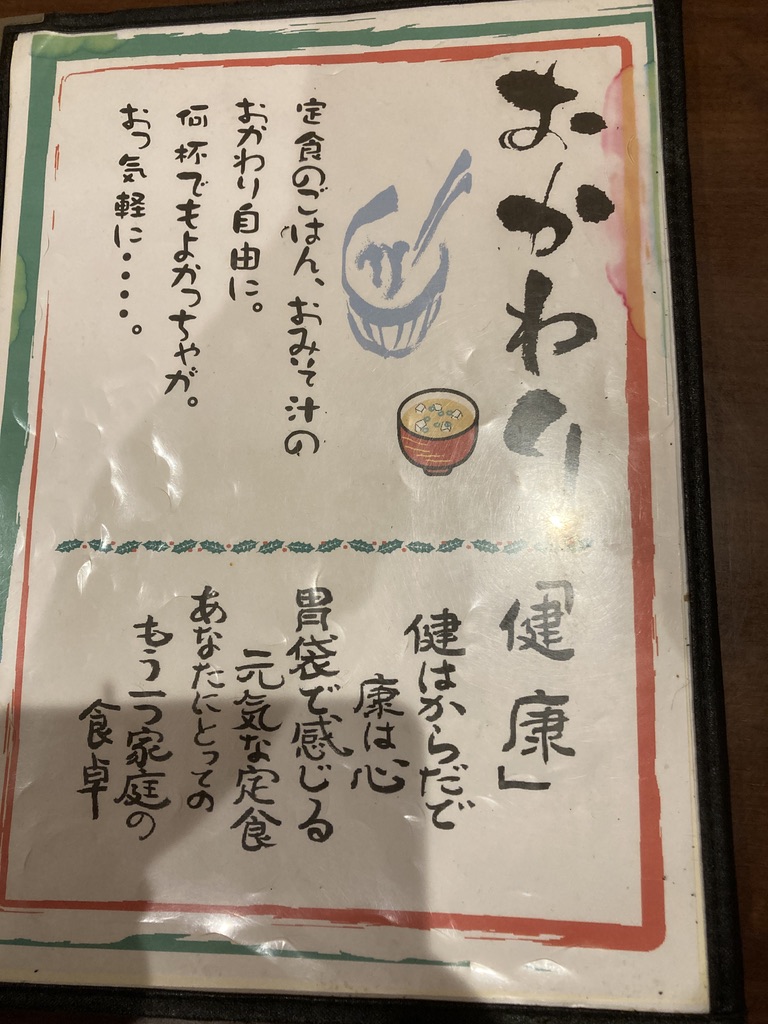 おかわり
定食のごはん、おみそ汁の
おかわり自由に。
何杯でもよかっちゃが。
おっ気軽に・・・・。
「健康」
健はからだで
康は心
胃袋で感じる
元気な定食
あなたにとっての
もう一つ家庭の
食卓